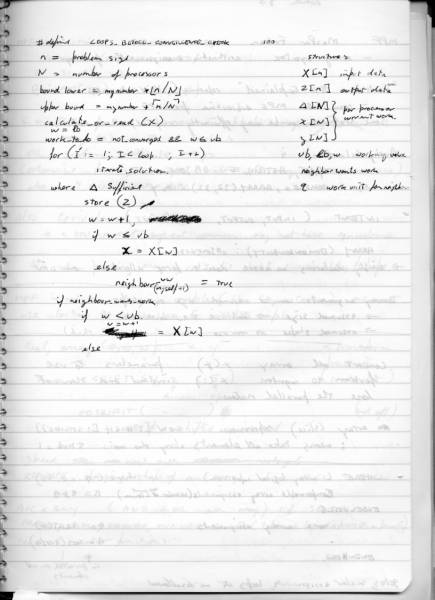 #define LOOPS_BEFORE_CONVERGENCE_CHECK 100
n = problem size
N = number of processors
bound lower = mynumber * ⌊n/N⌋
upper bound = mynumber * ⌈n/N⌉
calculate_or_read (X)
w = lb
work_to_do = not_converged && w ≤ ub
for (I = 1; I < loop; I++)
iterate solution
where Δ sufficient
store (Z)
w = w+1,
if w ≤ ub
x = X[w]
else
neighbour (myself+1) = true
if neighbour_wants_work
if w < ub
w = w+1
= X[w]
else
structures
X[n] input data
Z[n] output data
Δ[N]
x[N]
z[N]
per processor current work
ub, lb, w working value
neighbour wants work
work unit for neighbour